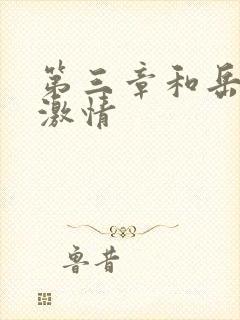 第三章和岳
激情
鲁昔